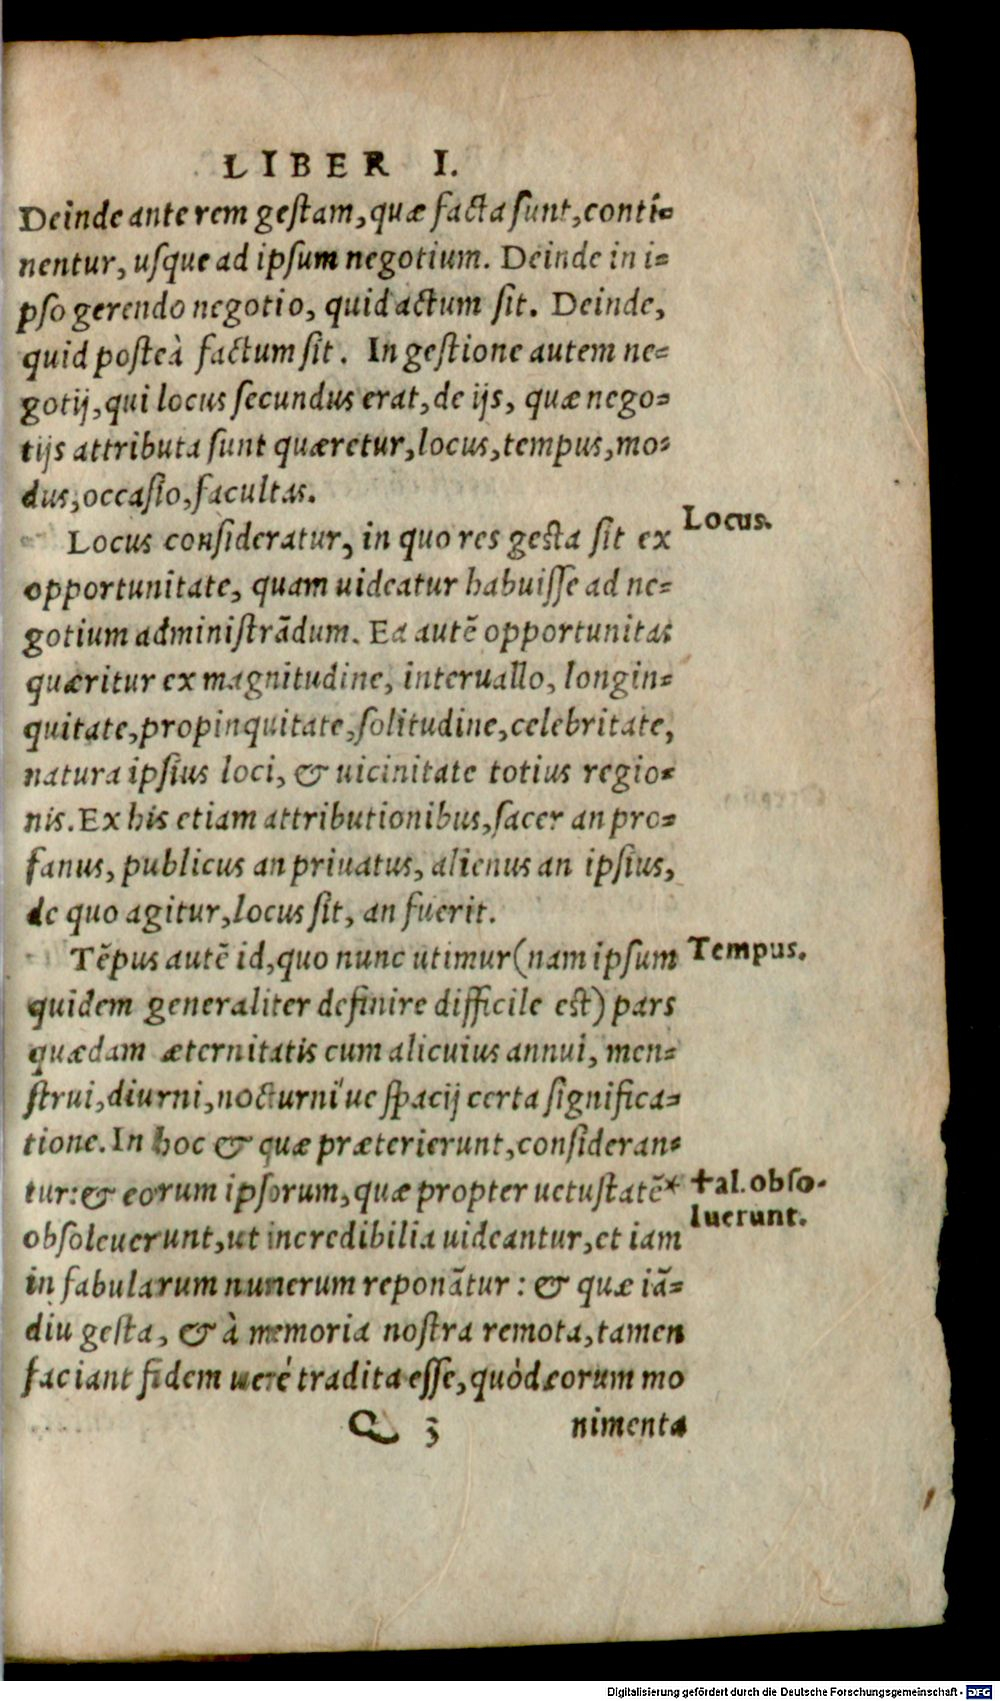 LIBER I.
Deinde ante rem gestam, quæ facta sunt, conti=
nentur, usque ad ipsum negotium. Deinde in i=
pso gerendo negotio, quid actum sit. Deinde,
quid posteà factum sit. In gestione autem ne=
gotij, qui locus secundus erat, de ijs, quæ nego=
tijs attributa sunt quæretur, locus, tempus, mo=
dus, occasio, facultas.
Locus.
Locus consideratur, in quo res gesta sit ex
opportunitate, quam uideatur habuisse ad ne=
gotium administrādum. Ea autē opportunitas
quæritur ex magnitudine, interuallo, longin=
quitate, propinquitate, solitudine, celebritate,
natura ipsius loci, & uicinitate totius regio=
nis. Ex his etiam attributionibus, sacer an pro=
fanus, publicus an priuatus, alienus an ipsius,
de quo agitur, locus sit, an fuerit.
Tempus.
Tēpus autē id, quo nunc utimur (nam ipsum
quidem generaliter definire difficile est) pars
quædam æternitatis cum alicuius annui, men=
strui, diurni, nocturni´ue spacij certa significa=
tione. In hoc & quæ præterierunt, consideran=
tur: & eorum ipsorum, quæ propter uetustatē*
✝al. obso-
luerunt.
obsoleuerunt, ut incredibilia uideantur, et iam
in fabularum numerum reponātur: & quæ iā=
diu gesta, & à memoria nostra remota, tamen
faciant fidem uerè tradita esse, quòd eorum mo
Q 3 nimenta
Digitalisierung gefördert durch die Deutsche Forschungsgemeinschaft - DFG